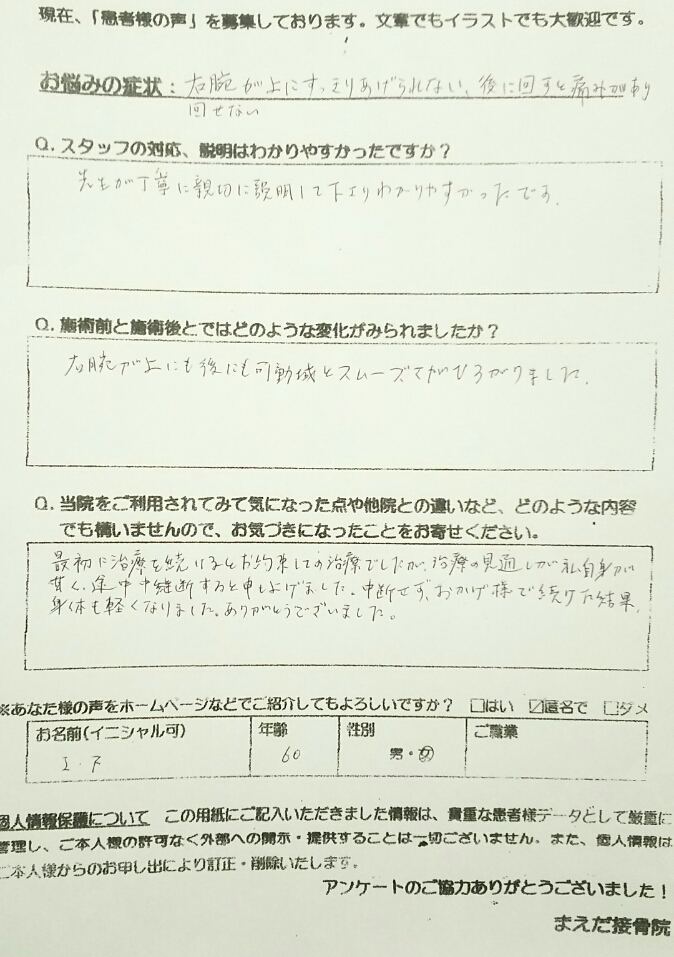 現在、「患者様の声」を募集しております。文章でもイラストでも大歓迎です。
お悩みの症状：右腕が上にすっきりあげられない、後に回すと痛みがあり
回せない
Q. スタッフの対応、説明はわかりやすかったですか？
先生が丁寧に親切に説明して下さりわかりやすかったです。
Q. 施術前と施術後とではどのような変化がみられましたか？
右腕が上にも後にも可動域とスムーズさがひろがりました。
Q. 当院をご利用されてみて気になった点や他院との違いなど、どのような内容
でも構いませんので、お気づきになったことをお寄せください。
最初に治療を続けるとお約束しての治療でしたが、治療の見通しが私自身が
甘く、途中中継断すると申し上げました。中断せず、おかげ様で続けた結果、
身体も軽くなりました。ありがとうございました。
※あなた様の声をホームページなどでご紹介してもよろしいですか？ □はい ☑匿名で □ダメ
お名前(イニシャル可) 年齢 性別 ご職業
I・F 60 男・女
個人情報保護について この用紙にご記入いただきました情報は、貴重な患者様データとして厳重に
管理し、ご本人様の許可なく外部への開示・提供することは一切ございません。また、個人情報は
ご本人様からのお申し出により訂正・削除いたします。
アンケートのご協力ありがとうございました！
まえだ接骨院